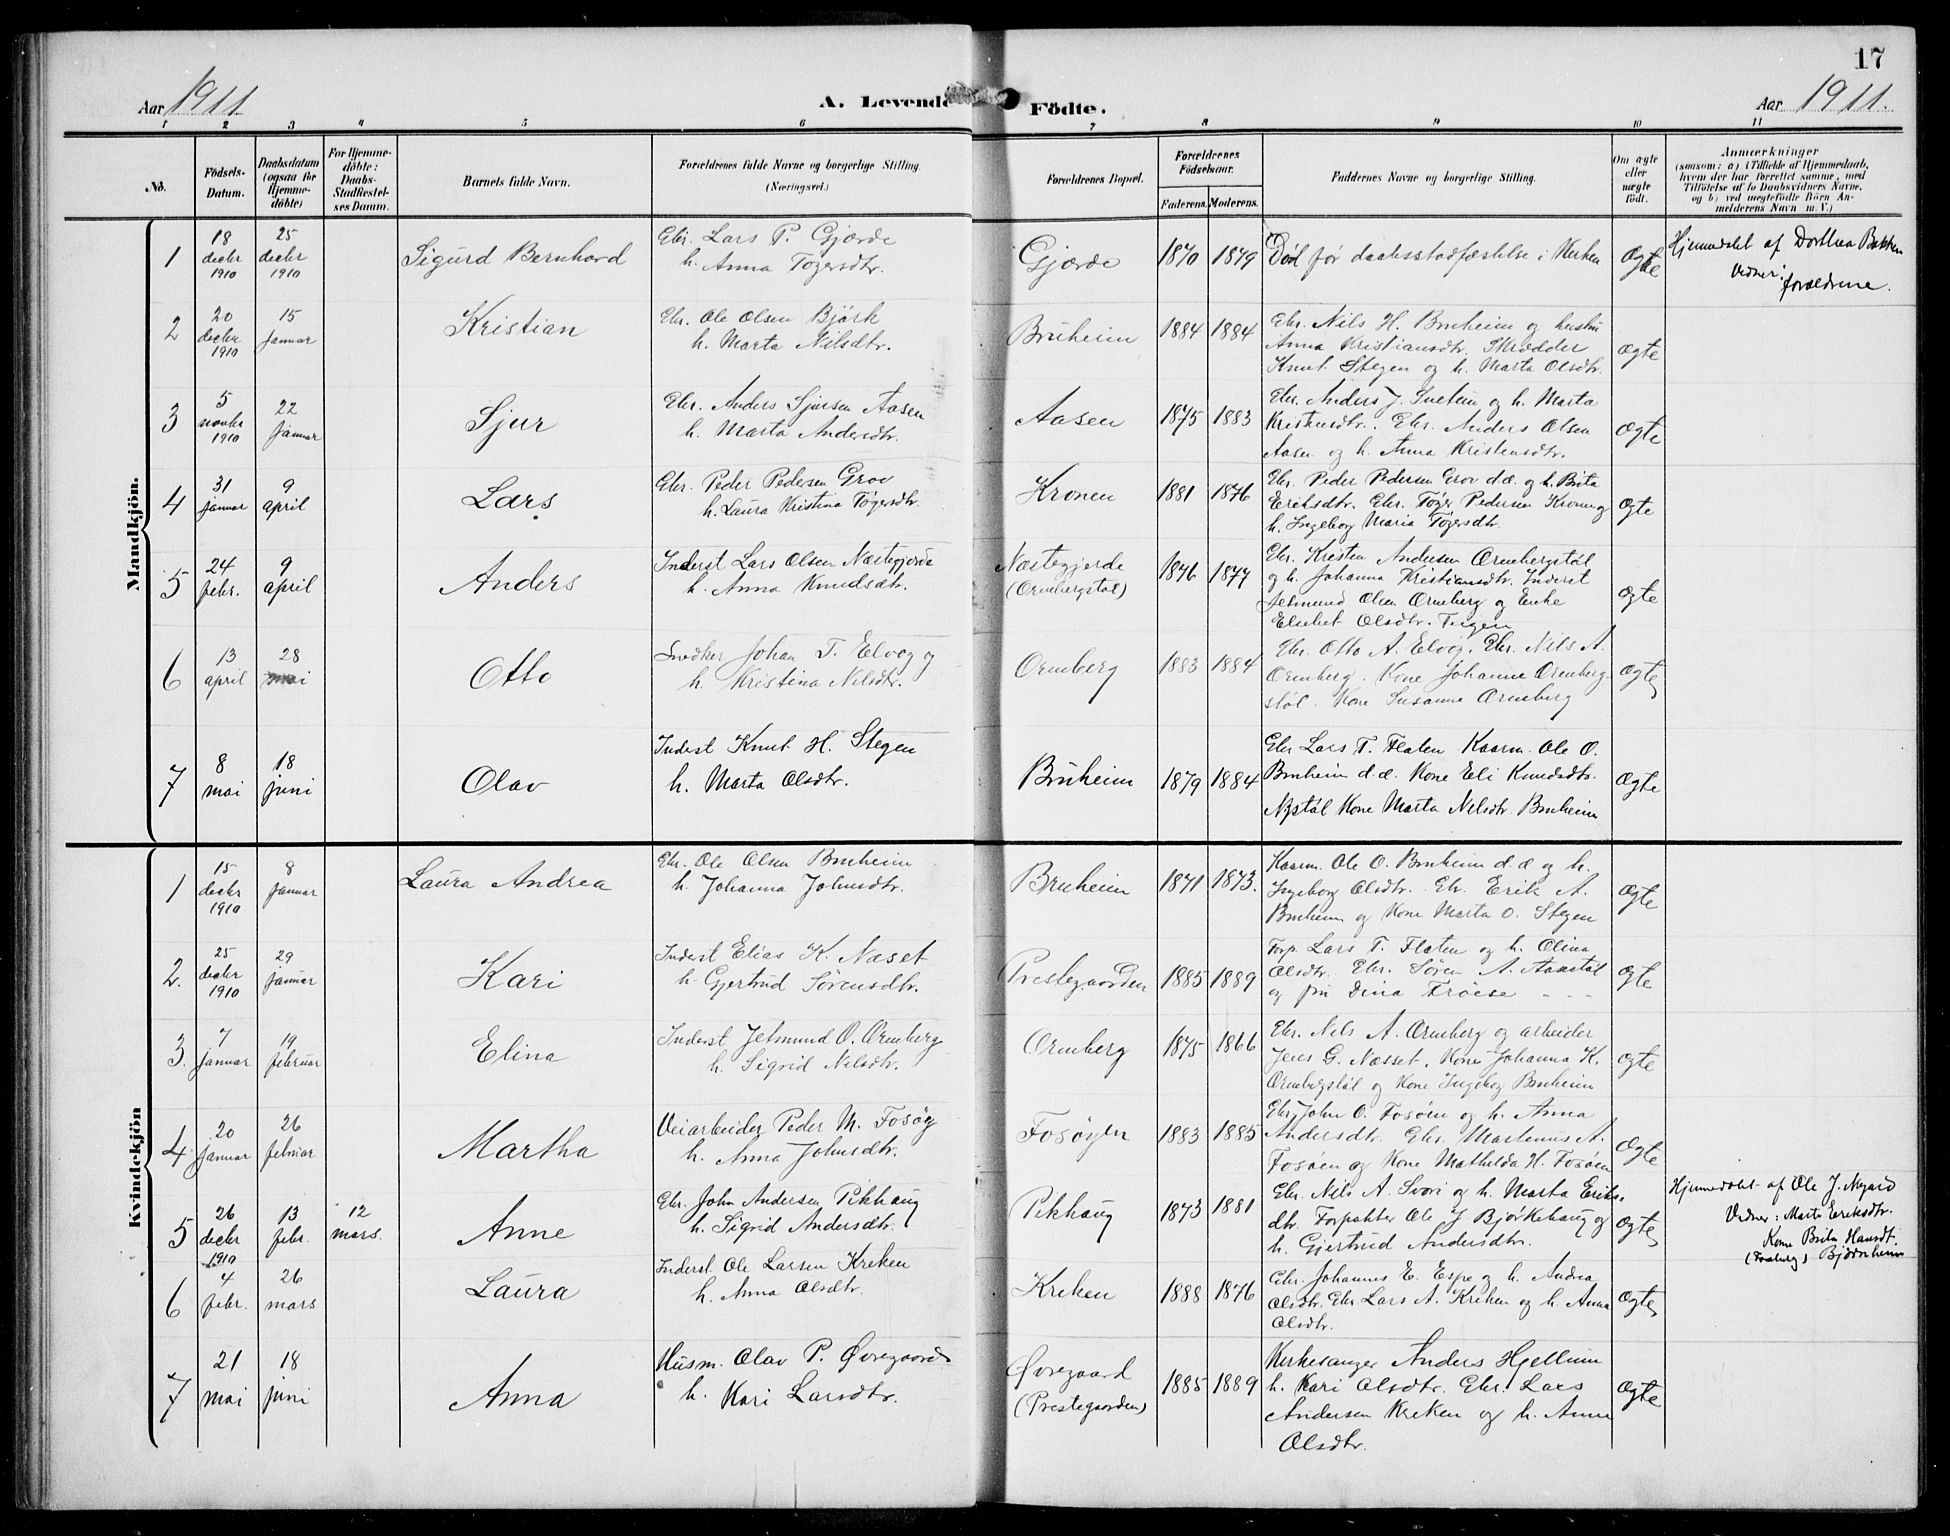 17
Aar 1911.
A. Levende Födte.
Aar 1911.
1 2 3 4 5 6 7 8 9 10 11
No.
Födsels-Datum.
Daabsdatum (ogsaa for Hjemme-döbte)
For Hjemme-döbte: Daabs-Stadfæstel-ses Datum.
Barnets fulde Navn.
Forældrenes fulde Navne og borgerlige Stilling.
(Næringsvei.)
Forældrenes Bopæl.
Forældrenes Födselsaar.
Faderens. Moderens.
Faddernes Navne og borgerlige Stilling.
Om ægte eller uægte födt.
Anmærkninger
(saasom: a) i Tilfælde af Hjemmedaab,
hvem der har forrettet samme, med
Tilföielse af to Daabsvidners Navne.
og b) ved uegtefödte Börn An-
melderens Navn m. V.)
Mandkjön.
1
18 decbr 1910
25 decbr 1910
Sigurd Bernhard
Gbr. Lars P. Gjerde
h. Anna Tøgersdtr.
Gjerde
1870 1879
Død før daabsstadfæstelse i Kirken
Ægte
Hjemmedøbt af Dorthea Bakken
Vidner: forældrene.
2
20 decbr 1910
15 januar
Kristian
Gbr. Ole Olsen Bjørk
h. Marta Nilsdtr.
Bruheim
1884 1884
Gbr. Nils H. Bruheim og hustru
Anna Kristiansdtr. Skrædder
Knut Stegen og h. Marta Olsdtr.
ægte
3
5 novbr 1910
22 januar
Sjur
Gbr. Anders Sjursen Aasen
h. Marta Andersdtr.
Aasen
1875 1883
Gbr. Anders J. Suetun og h. Marta
Kristensdtr. Gbr. Anders Olsen
Aasen og h. Anna Kristensdtr.
ægte
4
31 januar
9 april
Lars
Gbr. Peder Pedersen Grov
h. Laura Kristina Tøgersdtr.
Kronen
1881 1876
Gbr. Peder Pedersen Grov d.æ. og h. Brita
Eriksdtr. Gbr. Tøger Pedersen Kronen og
h. Ingeborg Maria Tøgersdtr.
ægte
5
24 febr.
9 april
Anders
Inderst Lars Olsen Næstegjerde
h. Anna Knudsdtr.
Næstegjerde
(Ormbergstøl)
1846 1877
Gbr. Kristen Andersen Ormbergstøl
og h. Johanna Kristiansdtr. Inderst
Jetmund Olsen Ormberg og Enke
Elsebet Olsdtr.
ægte
6
13 april
28 mai
Otto
Snedker Johan T. Elvøg og
h. Kristina Nilsdtr.
Ormberg
1883 1884
Gbr. Otto A. Elvøg. Gbr. Nils A.
Ormberg. Kone Johanne Ormberg-
støl. Kone Susanne Ormberg
ægte
7
8 mai
18 juni
Olav
Inderst Knut H. Stegen
h. Marta Olsdtr.
Bruheim
1879 1884
Gbr Lars T. Flaten Kaarm. Ole O.
Bruheim d.æ. Kone Eli Knudsdtr.
Nystøl Kone Marta Nilsdtr. Bruheim
ægte
Kvindekjön
1
15 decbr 1910
8 januar
Laura Andrea
Gbr. Ole Olsen Bruheim
h. Johanna Johnsdtr.
Bruheim
1871 1873.
Kaarm. Ole O. Bruheim d.æ og h.
Ingeborg Olsdtr. Gbr. Erik A.
Bruheim og Kone Marta O. Stegen
ægte
2.
25 decbr 1910
29 januar
Kari
Inderst Elias K. Næset
h. Gjertrud Sørensdtr.
Prestegaarden
1885 1889
Forp. Lars T. Flaten og h. Olina
Olsdtr. Gbr. Søren A. Aaastøl
og fru Dina Frøise - - -
ægte
3.
7 januar
19 februar
Elina
Inderst Jetmund O. Ormberg
h. Sigrid Nilsdtr.
Ormberg
1875 1866
Gbr. Nils A. Ormberg og arbeider
Jens G. Næsset. Kone Johanna K.
Ormbergstøl og Kone Ingeborg Bruheim
ægte
4
20 januar
26 februar
Martha
Veiarbeider Peder M. Fosøy
h. Anna Johnsdtr.
Fosøyen
1883 1885
Gbr. John O. Fosøen og h. Anna
Andersdtr. Gbr. Martinus A.
Fosøen og Kone Mathilda H. Fosøen
ægte
5
26 decbr 1910
13 febr.
12 mars.
Anne
Gbr. John Andersen Pikhaug
h. Sigrid Andersdtr.
Pikhaug
1873 1881
Gbr. Nils A. Svori og h. Marta Eriks.
dtr. Forpakter Ole J Bjørkehaug og
h. Gjertrud Andersdtr.
ægte
Hjemmedøbt af Ole J. Nygard
Vidner: Marta Eriksdtr.
Kone Brita Hansdt.
Bjørnheim
6
4 febr.
26 mars
Laura
Inderst Ole Larsen Kreken
h. Anna Olsdtr.
Kreken
1888 1876
Gbr. Johannes E. Espe og h. Andrea
Olsdtr. Gbr Lars A. Kreken og h. Anna
Olsdtr.
ægte
7
21 mai
18 juni
Anna
Husm. Olav P. Øvregaard
h. Kari Larsdtr.
Øvregaard
(Prestegaarden)
1885 1889
Kirkesanger Anders Hjellum
h. Kari Olsdtr. Gbr. Lars
Andersen Kreken og h. Anna
Olsdtr.
ægte